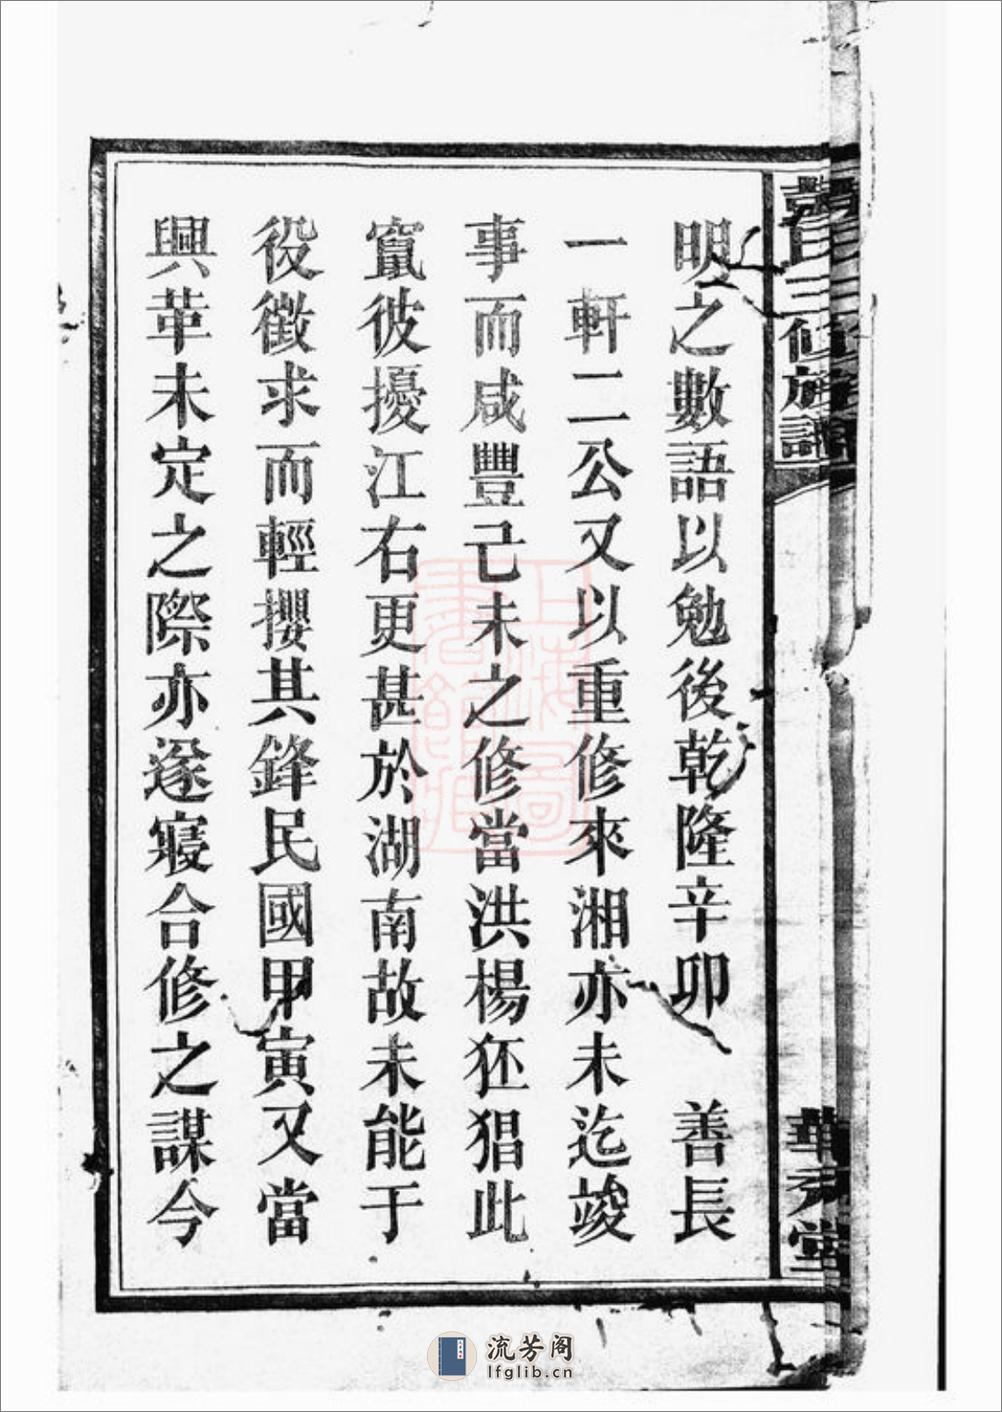 氏三修族譜
華元堂
明之數語以勉後乾隆辛卯　善長
一軒二公又以重修來湘亦未迄竣
事而咸豐己未之修當洪楊狂猖此
竄彼擾江右更甚於湖南故未能于
役徵求而輕攖其鋒民國甲寅又當
興革未定之際亦遂寢合修之謀今
上海圖書館藏
流芳阁
lfglib.cn